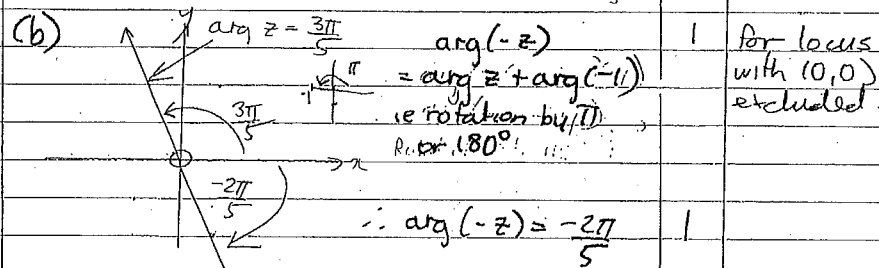 (b)
y
arg z = 3π/5
3π/5
x
-2π/5
arg(-z)
= arg z + arg(-1)
π
-1
ie rotation by π
or 180°
∴ arg(-z) = -2π/5
1
for locus
with (0,0)
excluded.
1